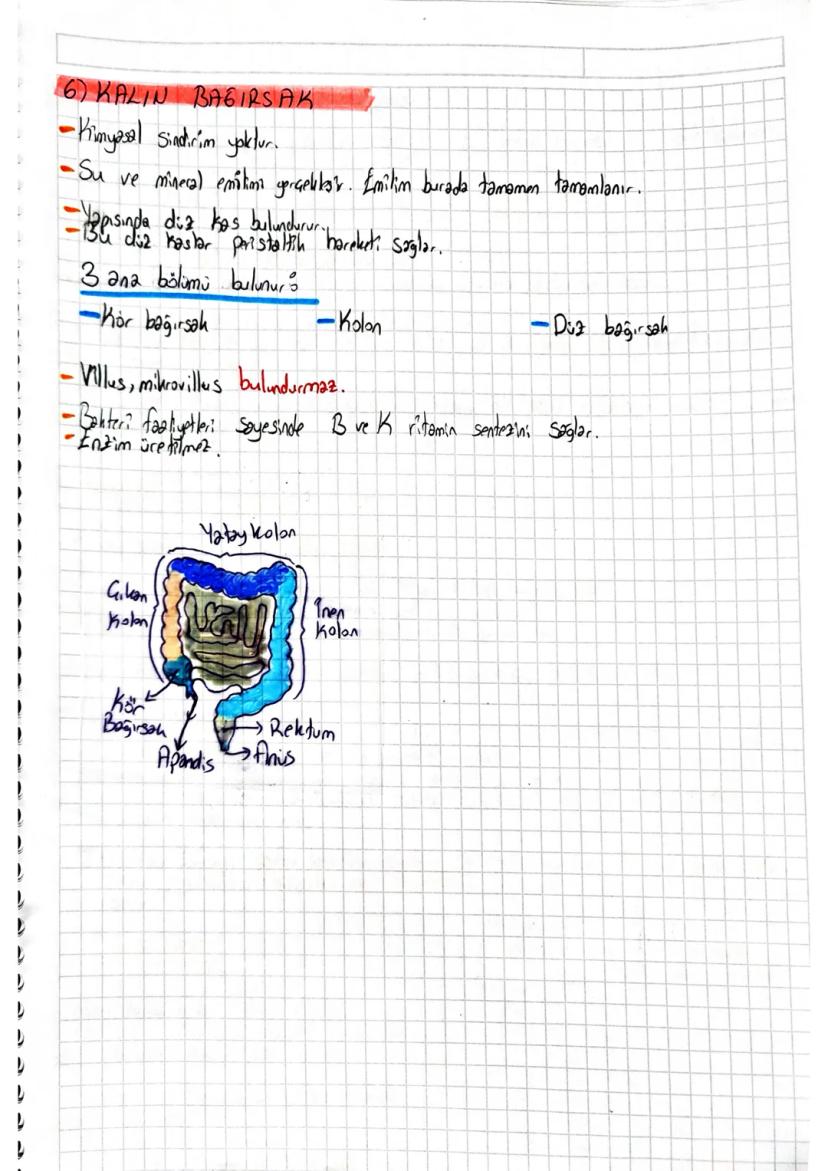 6) KALIN BAĞIRSAK
- Kimyasal sindirim yoktur.
- Su ve mineral emilimi gerçekleşir. Emilim burada tamamen tamamlanır.
- Yapısında düz kas bulundurur.
- Bu düz kaslar peristaltik hareketi sağlar.
3 ana bölümü bulunur:
- Kör bağırsak - Kolon - Düz bağırsak
- Villus, mikrovillus bulundurmaz.
- Bakteri faaliyetleri sayesinde B ve K vitamin sentezini sağlar.
- Enzim üretilmez.
Yatay Kolon
Çıkan
Kolon
İnen
Kolon
Kör
Bağırsak
Apandis
Rektum
Anüs